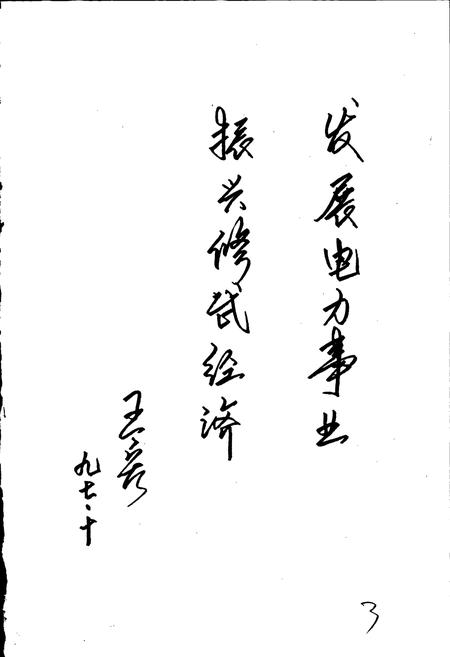 发展电力事业
振兴修武经济
王
九七·十
3